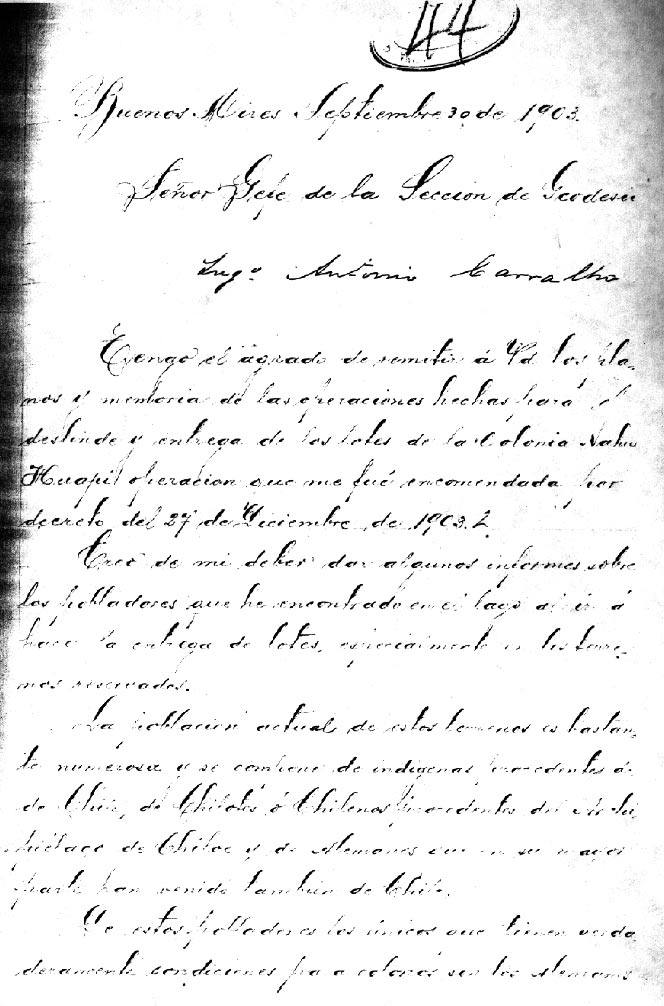 44
Buenos Aires Septiembre 30 de 1903.
Señor Gefe de la Seccion de Geodesia
Ing.º Antonio Carvalho
Tengo el agrado de remitir á Vd los pla-
nos y memoria de las operaciones hechas para el
deslinde y entrega de los lotes de la Colonia Nahuel
Huapi operacion que me fué encomendada por
decreto del 27 de Diciembre de 1902.
Creo de mi deber dar algunos informes sobre
los pobladores que he encontrado en el lago al ir á
hacer la entrega de lotes, especialmente en los terre-
nos reservados.
La poblacion actual de estos terrenos es bastan-
te numerosa y se compone de indígenas procedentes
de Chile, de Chilotes ó Chilenos procedentes del Archi
piélago de Chiloe y de Alemanes que en su mayor
parte han venido tambien de Chile.
De estos pobladores los únicos que tienen verda
deramente condiciones para colonos son los Alemanes